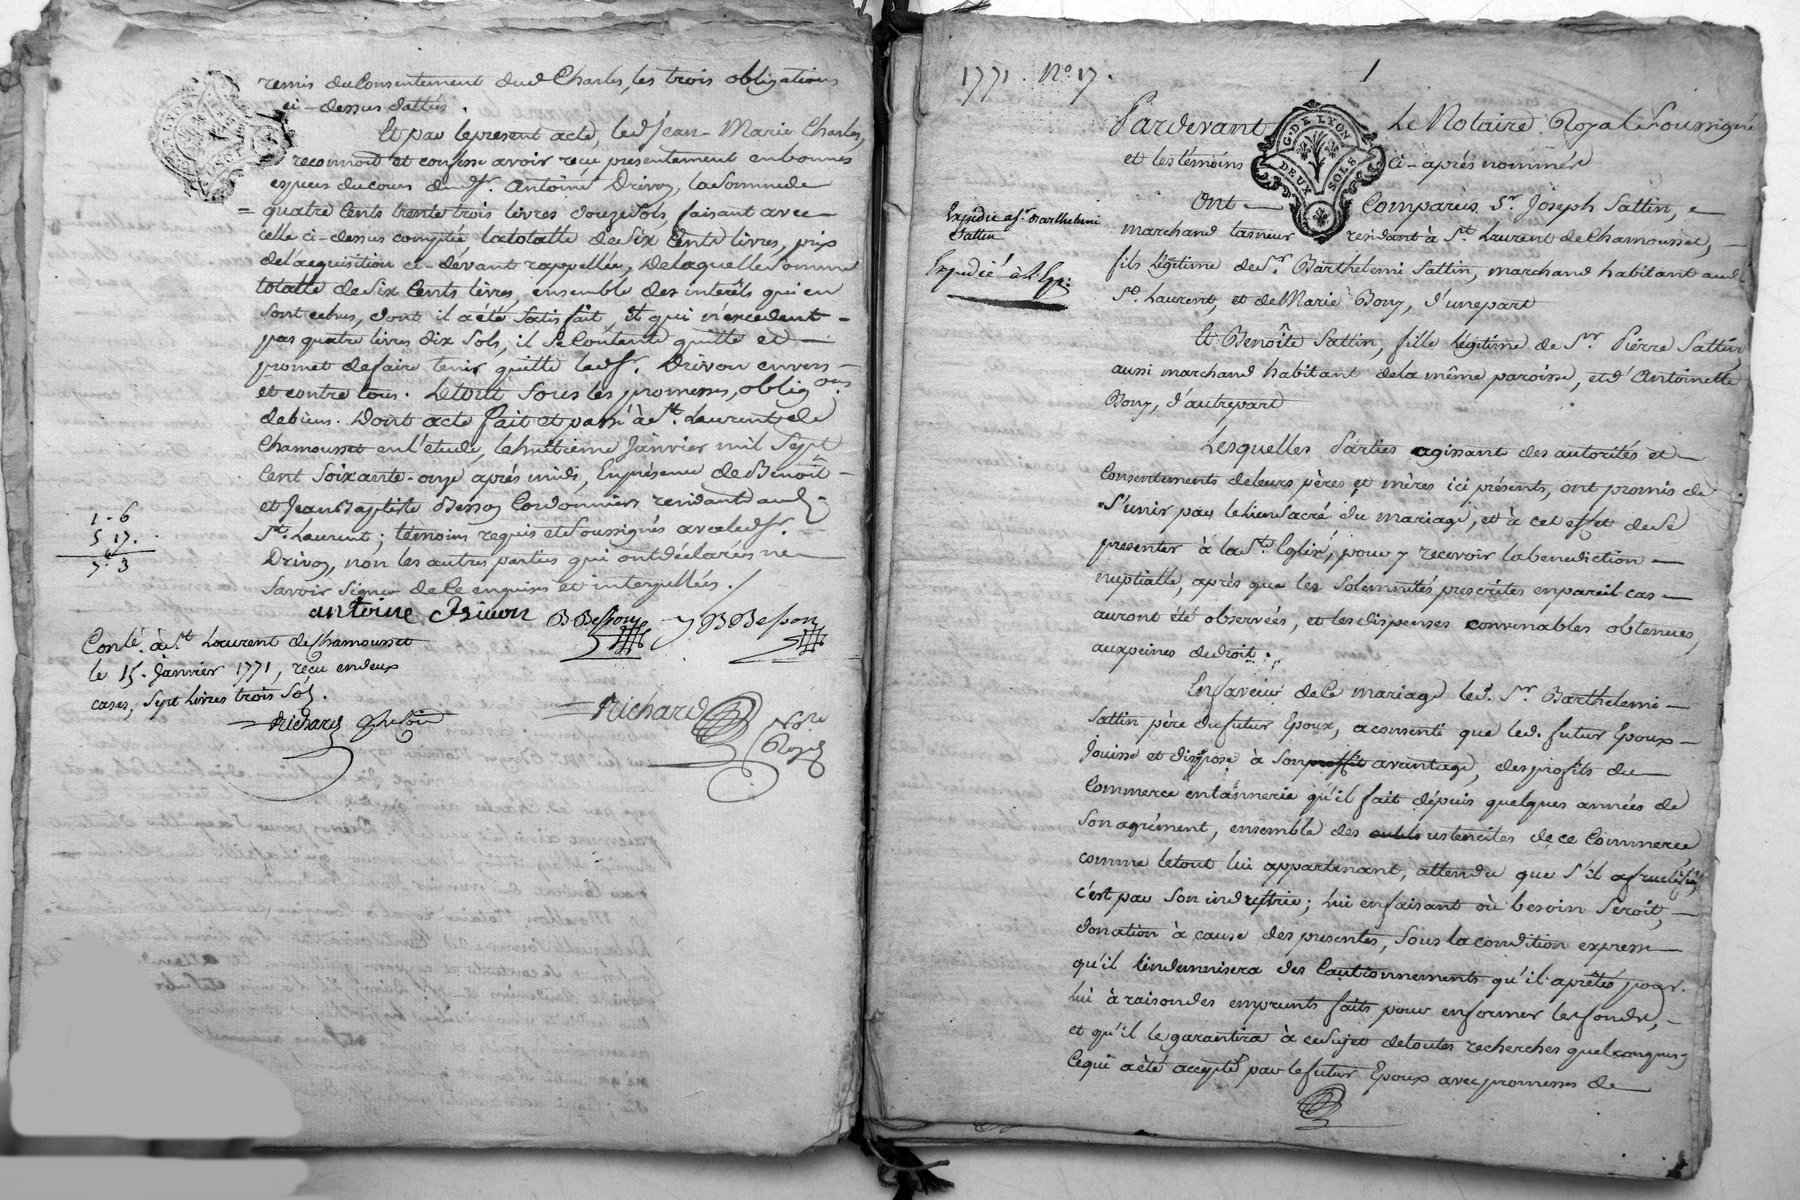 remis du Consentement dud Charles, les trois obligations
ci-dessus dattées.
Et par le present acte, led Jean-Marie Charles,
reconnoit et confesse avoir reçu presentement en bonnes
especes du cours dud Sr. Antoine Drivon, la Somme de
= quatre Cents trente trois livres douze Sols, faisant avec
celle ci-dessus comptée, la totalle de Six Cents livres, prix
de lacquisition ci-devant rappellée, De laquelle Somme
totalle de Six Cents livres, ensemble des interêts qui en
Sont echus, dont il a été Satisfait, et qui n'excedent
pas quatre livres dix Sols, il Se Contente quitte et
promet de faire tenir quitte led Sr. Drivon envers
et contre tous. Le tout Sous les promesses, obligons
de biens. Dont acte fait et passé à St. Laurent de
Chamousset en l'etude, le huitieme Janvier mil Sept
Cent Soixante-onze après midi, En présence de Benoît
et Jean Baptiste Besson Cordonniers residants aud.
St. Laurent; témoins requis et Soussignés avec led Sr.
Drivon, non les autres parties qui ont déclaré ne
Savoir Signer de Ce enquises et interpellées./
antoine Drivon BBesson J B Besson
1-6
5 17.
7-3
Conlé. à St. Laurent de Chamousset
le 15. Janvier 1771, reçu en deux
cases, Sept livres trois Sols.
Richard
Richard Nore
Royal
1771. No. 17.
1
Pardevant Le Notaire Royal Soussigné
G. DE LYON
DEUX SOLS
et les témoins ci-après nommés
Ont Comparus Sr. Joseph Sattin,
Expedié a Sr. Barthelemi
Sattin
marchand tanneur residant à St. Laurent de Chamousset,
fils légitime de Sr. Barthelemi Sattin, marchand habitant aud.
Expedié à
St. Laurent, et de Marie Bony, d'une part
Et Benoîte Sattin, fille légitime de Sr. Pierre Sattin
aussi marchand habitant de la même paroisse, et d'Antoinette
Bony, d'autre part
Lesquelles Parties agissant des autorités et
Consentements de leurs pères et mères ici présents, ont promis de
S'unir par le lien Sacré du mariage, et à cet effet de Se
presenter à la Ste. Eglise, pour y recevoir la benediction
nuptialle, après que les Solemnités prescrites en pareil cas
auront été observées, et les dispenses convenables obtenues,
aux peines de droit.
En faveur de Ce mariage led. Sr. Barthelemi
Sattin père du futur Epoux, a consenti que led. futur Epoux
Jouisse et dispose à Son proffit avantage, des profits du
Commerce en tannerie qu'il fait dépuis quelques années de
Son agrément, ensemble des outils ustenciles de ce Commerce
comme le tout lui appartenant, attendu que S'il a fructifié,
c'est par Son industrie; lui en faisant où besoin Seroit,
donation à cause des presentes, Sous la condition expresse
qu'il l'indemnisera des Cautionnements qu'il a prêtés pour
lui à raison des emprunts faits pour en former les fonds,
et qu'il le garantira à ce Sujet de toutes recherches quelconques,
Ce qui a été accepté par le futur Epoux avec promesses de